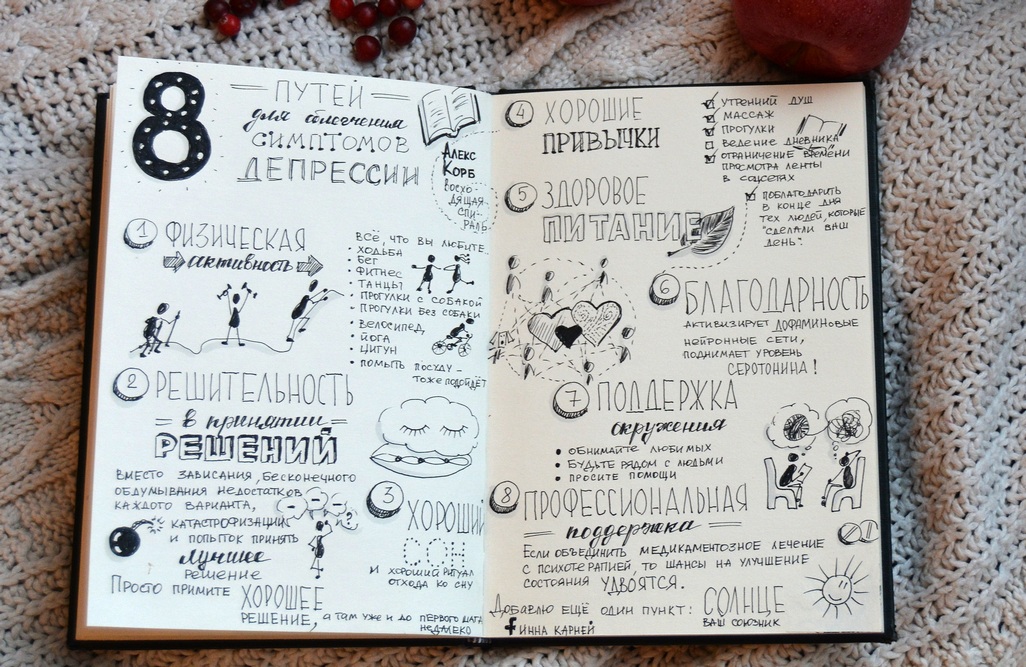 8
ПУТЕЙ
для облегчения
СИМПТОМОВ
ДЕПРЕССИИ
АЛЕКС
КОРБ
ВОСХО-
ДЯЩАЯ
СПИ-
РАЛЬ
1 ФИЗИЧЕСКАЯ
активность
ВСЁ, ЧТО ВЫ ЛЮБИТЕ
• ХОДЬБА
• БЕГ
• ФИТНЕС
• ТАНЦЫ
• ПРОГУЛКИ С СОБАКОЙ
• ПРОГУЛКИ БЕЗ СОБАКИ
• ВЕЛОСИПЕД
• ЙОГА
• ЦИГУН
• ПОМЫТЬ ПОСУДУ –
ТОЖЕ ПОДОЙДЁТ
2 РЕШИТЕЛЬНОСТЬ
в принятии
РЕШЕНИЙ
ВМЕСТО ЗАВИСАНИЯ, БЕСКОНЕЧНОГО
ОБДУМЫВАНИЯ НЕДОСТАТКОВ
КАЖДОГО ВАРИАНТА,
КАТАСТРОФИЗАЦИИ
И ПОПЫТОК ПРИНЯТЬ
лучшее
РЕШЕНИЕ
ПРОСТО ПРИМИТЕ
ХОРОШЕЕ
РЕШЕНИЕ, А ТАМ УЖЕ И ДО ПЕРВОГО ШАГА
НЕДАЛЕКО
3 ХОРОШИЙ
СОН
И ХОРОШИЙ РИТУАЛ
ОТХОДА КО СНУ
4 ХОРОШИЕ
ПРИВЫЧКИ
УТРЕННИЙ ДУШ
МАССАЖ
ПРОГУЛКИ
ВЕДЕНИЕ ДНЕВНИКА
ОГРАНИЧЕНИЕ ВРЕМЕНИ
ПРОСМОТРА ЛЕНТЫ
В СОЦСЕТЯХ
ПОБЛАГОДАРИТЬ
В КОНЦЕ ДНЯ
ТЕХ ЛЮДЕЙ, КОТОРЫЕ
"СДЕЛАЛИ ВАШ
ДЕНЬ".
5 ЗДОРОВОЕ
ПИТАНИЕ
6 БЛАГОДАРНОСТЬ
АКТИВИЗИРУЕТ ДОФАМИНОВЫЕ
НЕЙРОННЫЕ СЕТИ,
ПОДНИМАЕТ УРОВЕНЬ
СЕРОТОНИНА!
7 ПОДДЕРЖКА
окружения
• ОБНИМАЙТЕ ЛЮБИМЫХ
• БУДЬТЕ РЯДОМ С ЛЮДЬМИ
• ПРОСИТЕ ПОМОЩИ
8 ПРОФЕССИОНАЛЬНАЯ
поддержка
ЕСЛИ ОБЪЕДИНИТЬ МЕДИКАМЕНТОЗНОЕ ЛЕЧЕНИЕ
С ПСИХОТЕРАПИЕЙ, ТО ШАНСЫ НА УЛУЧШЕНИЕ
СОСТОЯНИЯ УДВОЯТСЯ.
ДОБАВЛЮ ЕЩЁ ОДИН ПУНКТ: СОЛНЦЕ
ВАШ СОЮЗНИК
f ИННА КАРНЕЙ